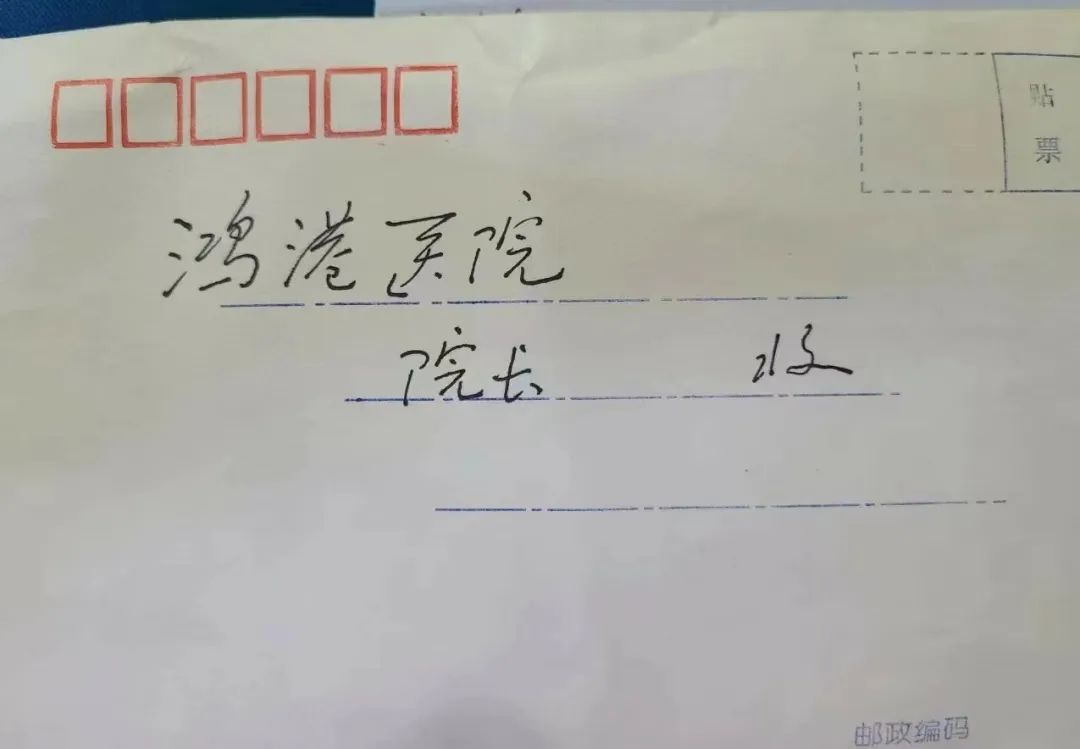 贴
票
鸿港医院
院长 收
邮政编码